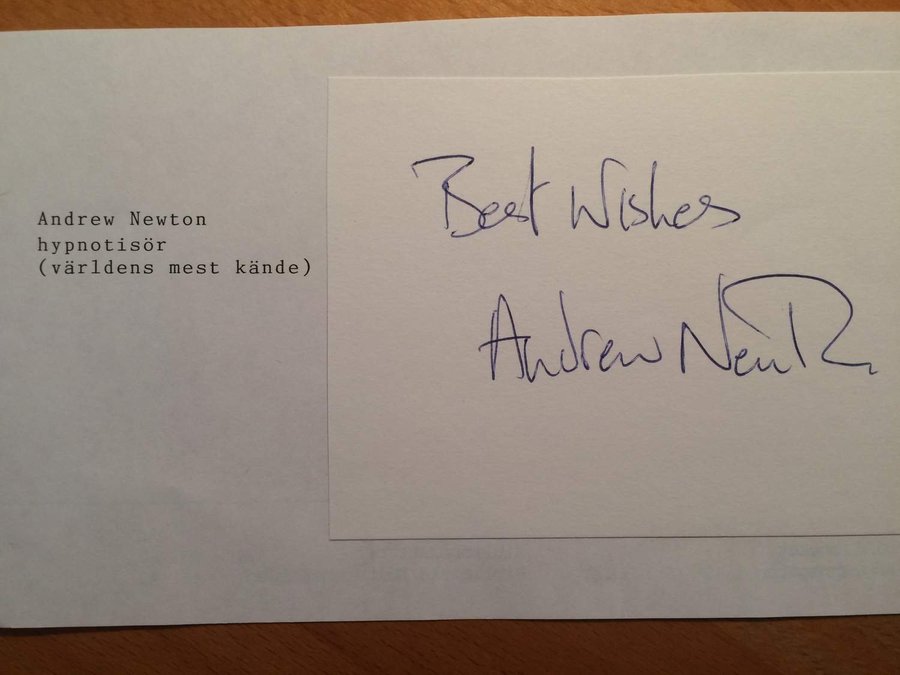 Andrew Newton
hypnotisör
(världens mest kände)
Best Wishes
Andrew Newton